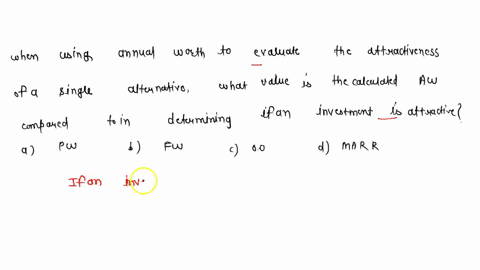 when using annual worth to evaluate the attractiveness
of a single alternative, what value is the calculated AW
compared to in determining if an investment is attractive?
a) PW b) FW c) 0.0 d) MARR
If an inv.